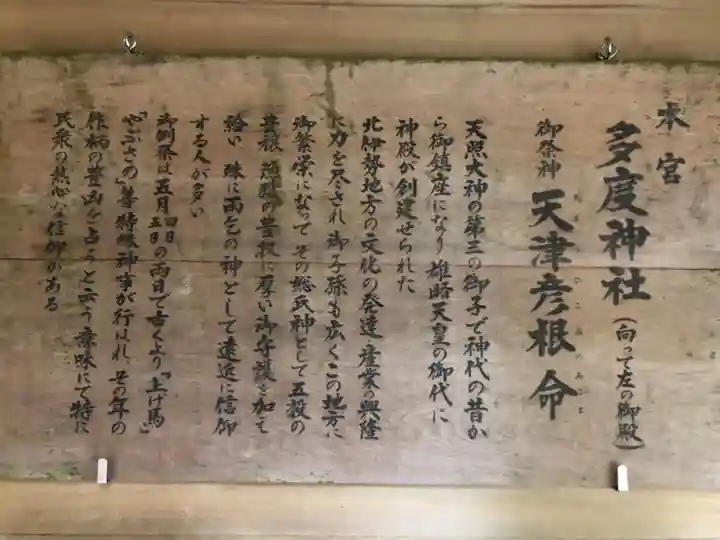 本宮
多度神社（向って左の御殿）
御祭神 天津彦根命
あまつひこねのみこと
天照大神の第三の御子で神代の昔か
ら御鎮座になり雄略天皇の御代に
神殿が創建せられた
北伊勢地方の文化の発達・産業の興隆
に力を尽され御子孫も広くこの地方に
御繁栄になって その総氏神として五穀の
豊穣 漁獲の豊収に厚い御守護を加て
給い 殊に雨乞の神として遠近に信仰
する人が多い
御例祭は五月四日五日の両日で古くより「上げ馬」
「やぶさめ」等特殊神事が行はれ、その年の
作柄の豊凶を占うと云う意味にて特に
民衆の熱心な信仰がある